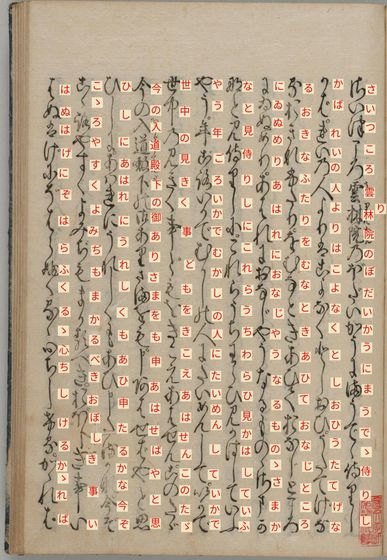 さいつころ雲林院のぼだいかうにまうでゝ侍りし
かばれいの人よりはこよなくとしおひうたてげな
るおきなふたりをむなときあひておなじところ
にゐぬめりあはれにおなじやうなるものゝさまか
なと見侍りしにこれらうちわらひ見かはしていふ
やう年ごろいかでむかしの人にたいめんしていかで
世中の見きく事どもをきこえあはせんこのたゞ
今の入道殿下の御ありさまをも申あはせばやと思
ひしにあはれにうれしくもあひ申たるかな今ぞ
こゝろやすくよみぢもまかるべきおぼしき事い
はぬはげにぞはらふくるゝ心ちしけるかゝれば